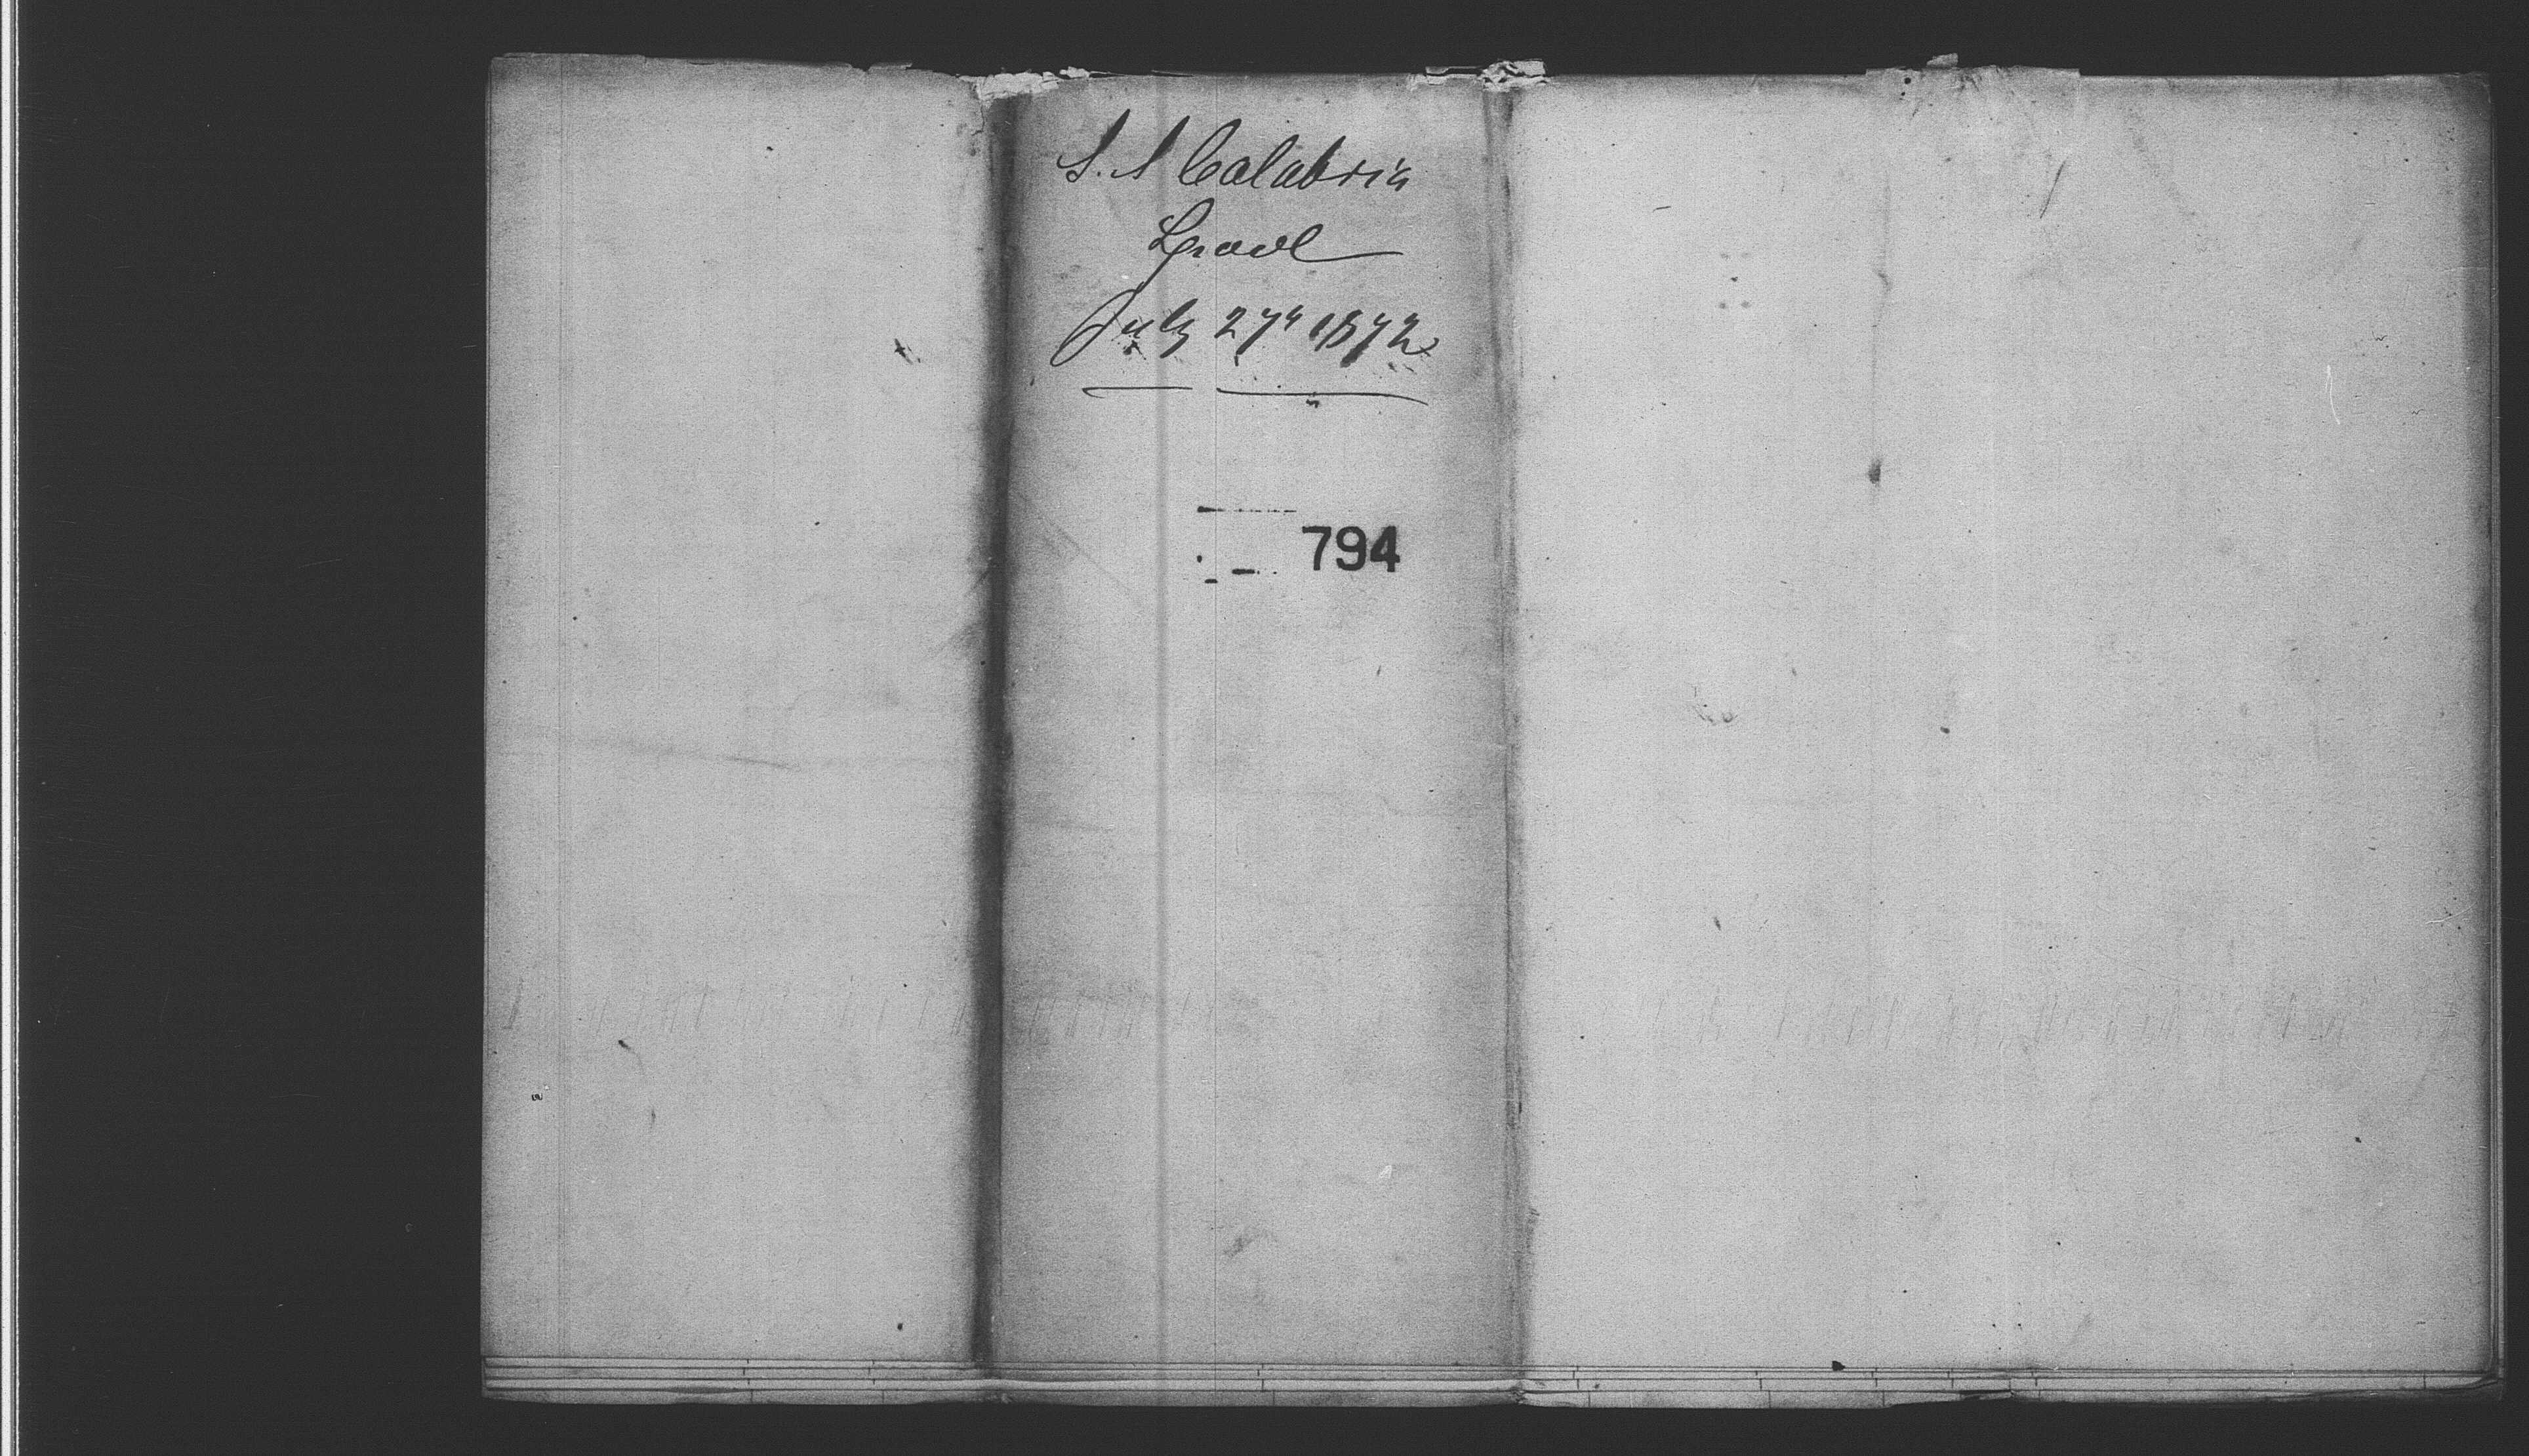 S. S Calabria
Lpool
July 27th 1872
794